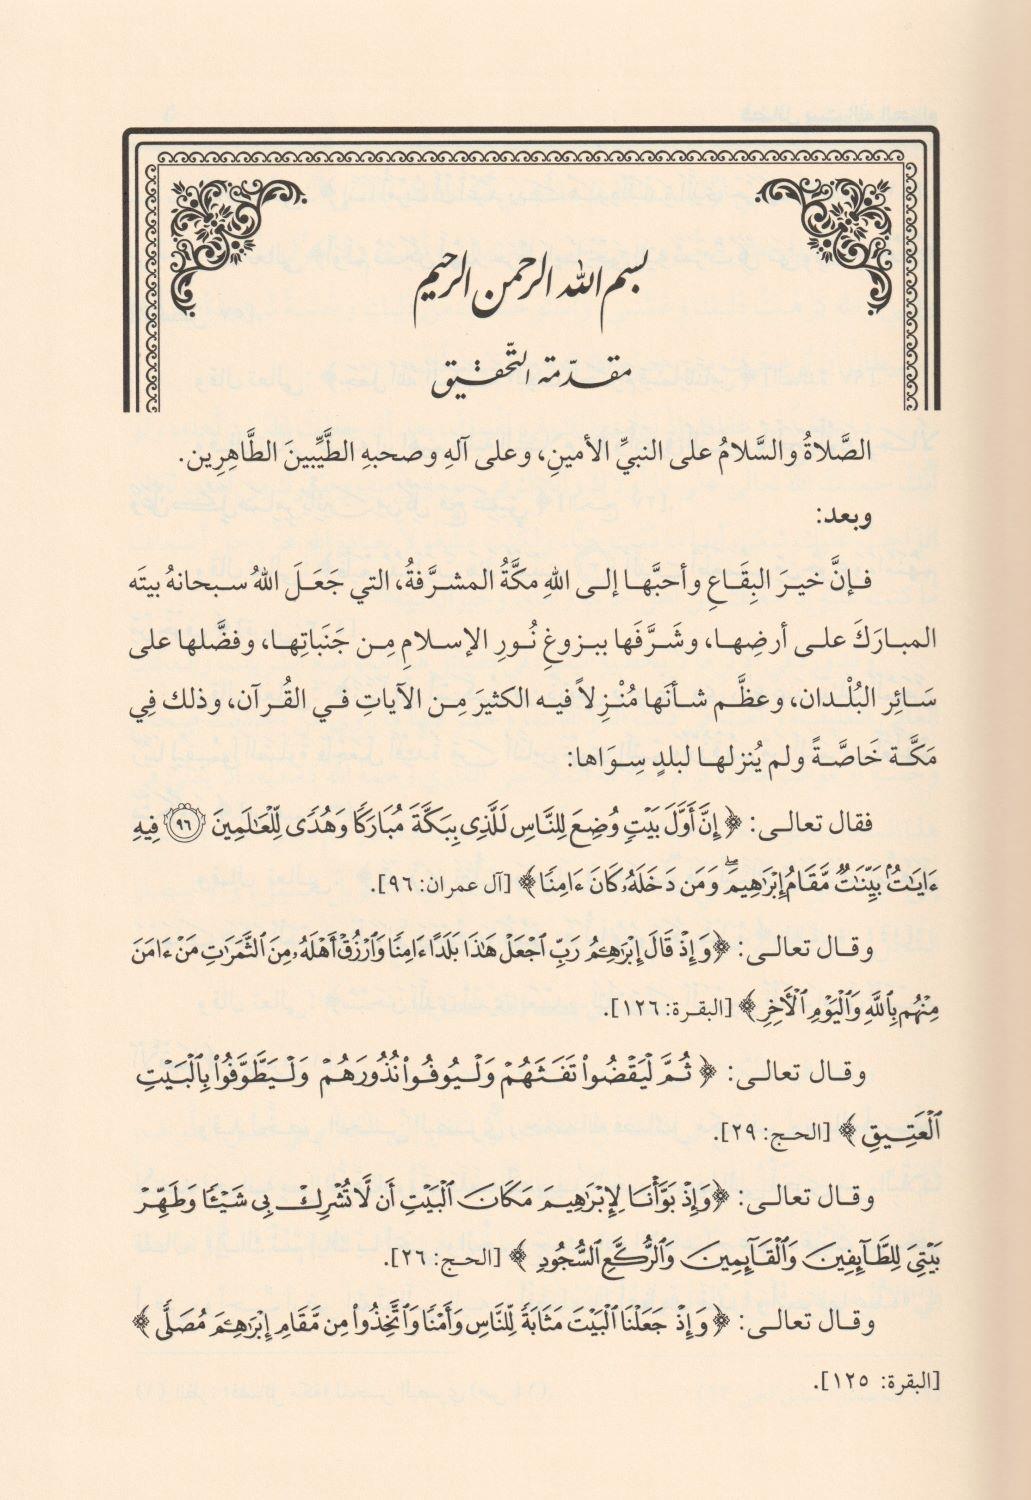 بسم الله الرحمن الرحيم
مقدّمة التّحقيق
الصَّلاةُ والسَّلامُ على النبيِّ الأمينِ، وعلى آلهِ وصحبهِ الطَّيِّبينَ الطَّاهِرِين.
وبعد:
فإنَّ خيرَ البِقَاعِ وأحبَّها إلى اللهِ مكَّةُ المشرَّفةُ، التي جَعَلَ اللهُ سبحانهُ بيتَه
المبارَكَ على أرضِها، وشَرَّفَها ببزوغِ نُورِ الإسلامِ مِن جَنَباتِها، وفضَّلها على
سَائِرِ البُلْدان، وعظَّم شأنَها مُنْزِلاً فيه الكثيرَ مِن الآياتِ في القُرآن، وذلك فِي
مَكَّة خَاصَّةً ولم يُنزلها لبلدٍ سِوَاها:
فقال تعالى: ﴿إِنَّ أَوَّلَ بَيْتٍ وُضِعَ لِلنَّاسِ لَلَّذِي بِبَكَّةَ مُبَارَكًا وَهُدًى لِّلْعَالَمِينَ ﴿٩٦﴾ فِيهِ
ءَايَٰتٌۢ بَيِّنَٰتٌ مَّقَامُ إِبْرَٰهِيمَۖ وَمَن دَخَلَهُۥ كَانَ ءَامِنًا﴾ [آل عمران: ٩٦].
وقال تعالى: ﴿وَإِذْ قَالَ إِبْرَٰهِـۧمُ رَبِّ ٱجْعَلْ هَٰذَا بَلَدًا ءَامِنًا وَٱرْزُقْ أَهْلَهُۥ مِنَ ٱلثَّمَرَٰتِ مَنْ ءَامَنَ
مِنْهُم بِٱللَّهِ وَٱلْيَوْمِ ٱلْأَخِرِ﴾ [البقرة: ١٢٦].
وقال تعالى: ﴿ثُمَّ لْيَقْضُوا۟ تَفَثَهُمْ وَلْيُوفُوا۟ نُذُورَهُمْ وَلْيَطَّوَّفُوا۟ بِٱلْبَيْتِ
ٱلْعَتِيقِ﴾ [الحج: ٢٩].
وقال تعالى: ﴿وَإِذْ بَوَّأْنَا لِإِبْرَٰهِيمَ مَكَانَ ٱلْبَيْتِ أَن لَّا تُشْرِكْ بِى شَيْـًٔا وَطَهِّرْ
بَيْتِىَ لِلطَّآئِفِينَ وَٱلْقَآئِمِينَ وَٱلرُّكَّعِ ٱلسُّجُودِ﴾ [الحج: ٢٦].
وقال تعالى: ﴿وَإِذْ جَعَلْنَا ٱلْبَيْتَ مَثَابَةً لِّلنَّاسِ وَأَمْنًا وَٱتَّخِذُوا۟ مِن مَّقَامِ إِبْرَٰهِـۧمَ مُصَلًّى﴾
[البقرة: ١٢٥].